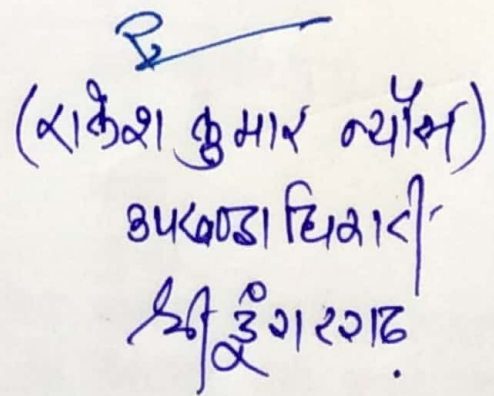 (राकेश कुमार न्यौल)
उपखण्डाधिकारी
श्री डूंगरगढ़.